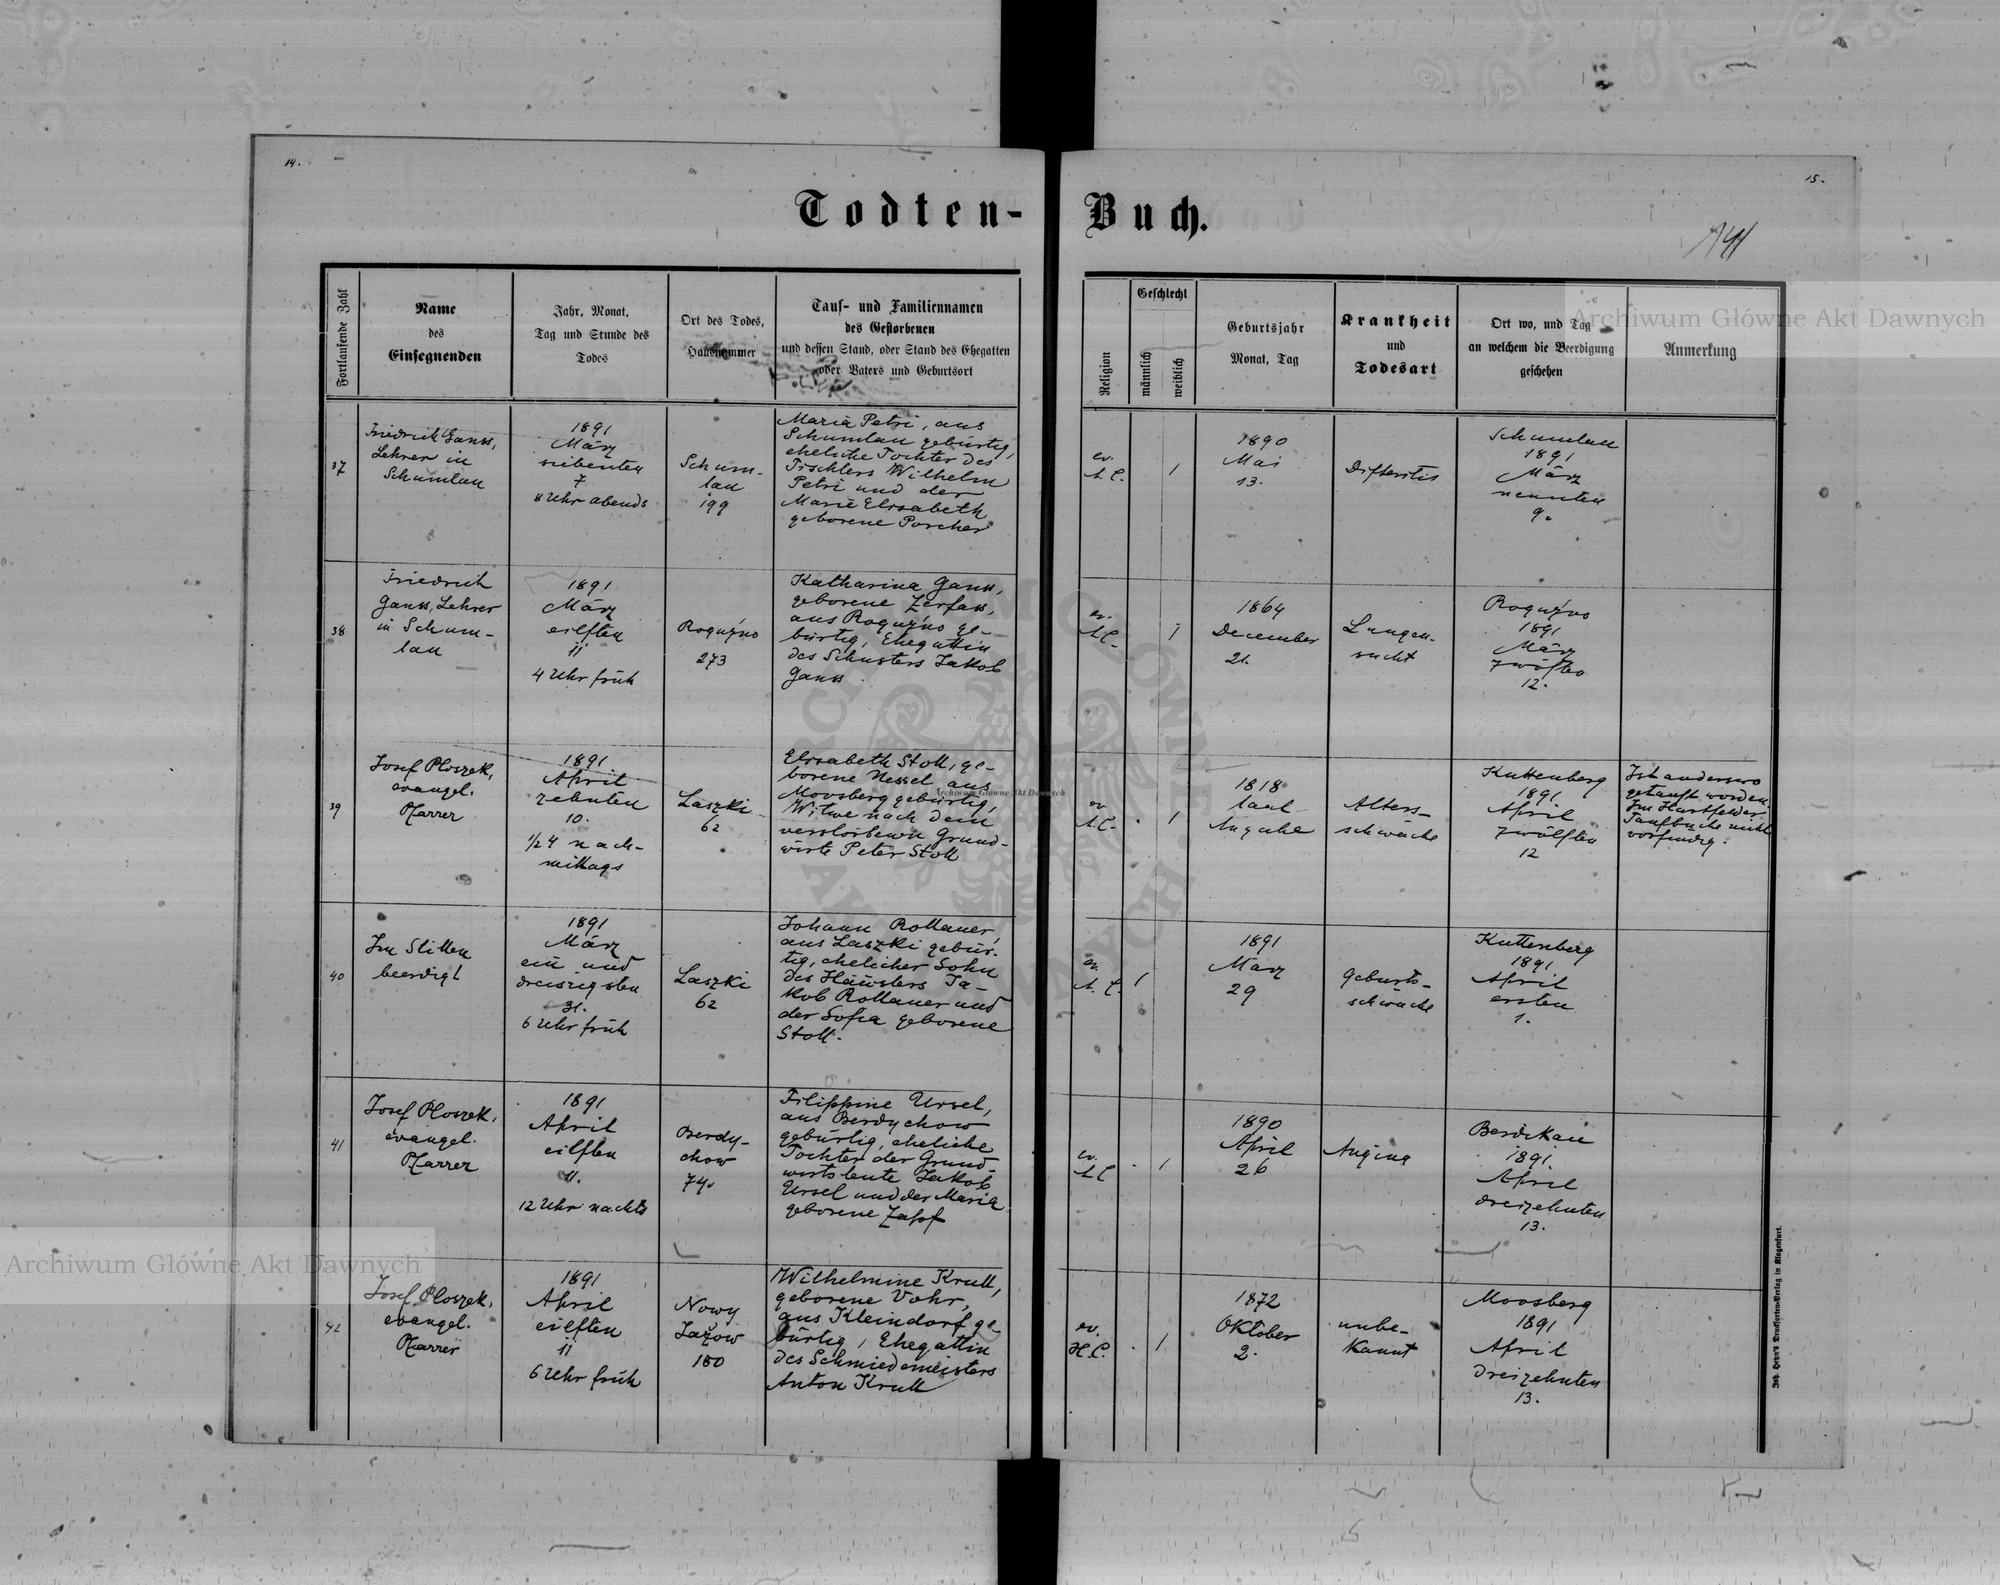 14.
15.
Todten-
Buch.
141
Fortlaufende Zahl
Name
des
Einsegnenden
Jahr, Monat,
Tag und Stunde des
Todes
Ort des Todes,
Hausnummer
Tauf- und Familiennamen
des Gestorbenen
und dessen Stand, oder Stand des Ehegatten
oder Vaters und Geburtsort
Religion
Geschlecht
männlich
weiblich
Geburtsjahr
Monat, Tag
Krankheit
und
Todesart
Ort wo, und Tag
an welchem die Beerdigung
geschehen
Anmerkung
37
Friedrich Ganss,
Lehrer in
Schumlau
1891
März
siebenten
7
8 Uhr abends
Schum-
lau
199
Maria Petri, aus
Schumlau gebürtig,
eheliche Tochter des
Tischlers Wilhelm
Petri und der
Marie Elisabeth
geborene Porcher
ev.
A.C.
1
1890
Mai
13.
Difteritis
Schumlau
1891
März
neunten
9.
38
Friedrich
Ganss, Lehrer
in Schum-
lau
1891
März
eilften
11
4 Uhr früh
Roguźno
273
Katharina Ganss,
geborene Zerfass,
aus Roguźno ge-
bürtig, Ehegattin
des Schusters Jakob
Ganss
ev.
A.C.
1
1864
December
21.
Lungen-
sucht
Roguźno
1891
März
zwölften
12.
39
Josef Ploszek,
evangel.
Pfarrer
1891
April
zehnten
10.
1/2 4 nach-
mittags
Laszki
62
Elisabeth Stoll, ge-
borene Nessel aus
Moosberg gebürtig,
Witwe nach dem
verstorbenen Grund-
wirte Peter Stoll
ev
A.C.
1
1818
laut
Angabe
Alters-
schwäche
Kuttenberg
1891
April
zwölften
12
Ist anderswo
getauft worden.
Im Hartfelder
Taufbuche nicht
vorfindig.
40
Im Stillen
beerdigt
1891
März
ein und
dreiszigsten
31.
6 Uhr früh
Laszki
62
Johann Rollauer,
aus Laszki gebür-
tig, ehelicher Sohn
des Häuslers Ja-
kob Rollauer und
der Sofia geborene
Stoll.
ev.
A.C.
1
1891
März
29
Geburts-
schwäche
Kuttenberg
1891
April
ersten
1.
41
Josef Ploszek,
evangel.
Pfarrer
1891
April
eilften
11.
12 Uhr nachts
Berdy-
chow
74.
Filippine Ursel,
aus Berdychow
gebürtig, eheliche
Tochter der Grund-
wirtsleute Jakob
Ursel und der Maria
geborene Zapf
ev.
A.C
1
1890
April
26
Angina
Berdikau
1891.
April
dreizehnten
13.
42
Josef Ploszek,
evangel.
Pfarrer
1891
April
eilften
11
6 Uhr früh
Nowy
Jażow
180
Wilhelmine Krull,
geborene Vohr,
aus Kleindorf ge-
bürtig, Ehegattin
des Schmiedemeisters
Anton Krull
ev.
H.C.
1
1872
Oktober
2.
unbe-
kannt
Moosberg
1891
April
dreizehnten
13.
Joh. Heyn's Drucksorten-Verlag in Klagenfurt.
Archiwum Główne Akt Dawnych
Archiwum Główne Akt Dawnych
Archiwum Główne Akt Dawnych